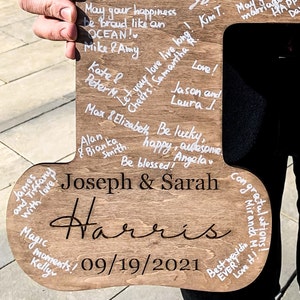 May your happiness
be broad like an
OCEAN!
Mike & Amy
Kim T
May
Kate &
Peter M
Let your love live long!
Cheers! Samantha N
Love!
Jason and
Laura
Max & Elizabeth
Be lucky,
happy, awesome
Angela
Alan
& Bianka
Smith
Be blessed!
James
and Tiffany
with love
Joseph & Sarah
Harris
09/19/2021
Magic
moments!
Kelly
Congratulations!
Miranda M
Best wedding
EVER!